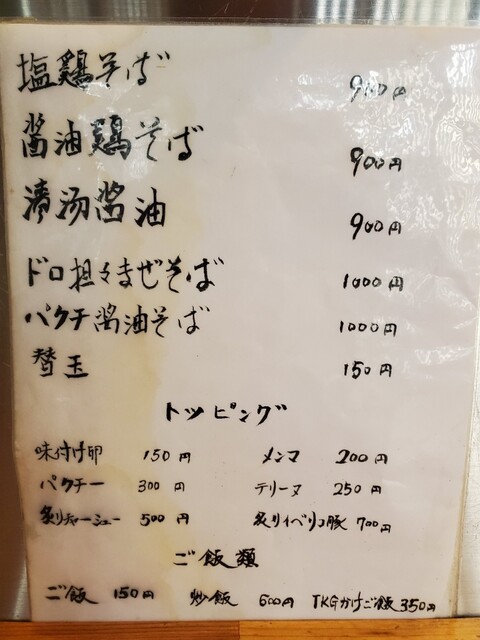 塩鶏そば 900円
醤油鶏そば 900円
清汤醤油 900円
ドロ担々まぜそば 1000円
パクチ醤油そば 1000円
替玉 150円
トッピング
味付け卵 150円 メンマ 200円
パクチー 300円 テリーヌ 250円
炙りチャーシュー 500円 炙りイベリコ豚 700円
ご飯類
ご飯 150円 炒飯 600円 TKGかけご飯 350円